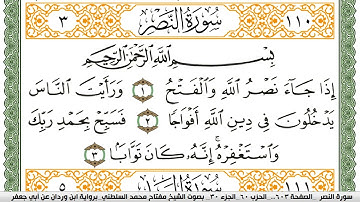 ٣ سُورَةُ النَّصْرِ ١١٠
بِسْمِ اللَّهِ الرَّحْمَٰنِ الرَّحِيمِ
إِذَا جَآءَ نَصْرُ اللَّهِ وَالْفَتْحُ ١ وَرَأَيْتَ النَّاسَ
يَدْخُلُونَ فِى دِينِ اللَّهِ أَفْوَاجًا ٢ فَسَبِّحْ بِحَمْدِ رَبِّكَ
وَاسْتَغْفِرْهُ إِنَّهُ كَانَ تَوَّابًا ٣
٥ ١١١
سورة النصر _الصفحة ٦٠٣_ الحزب ٦٠_ الجزء ٣٠_ بصوت الشيخ مفتاح محمد السلطني برواية ابن وردان عن أبي جعفر